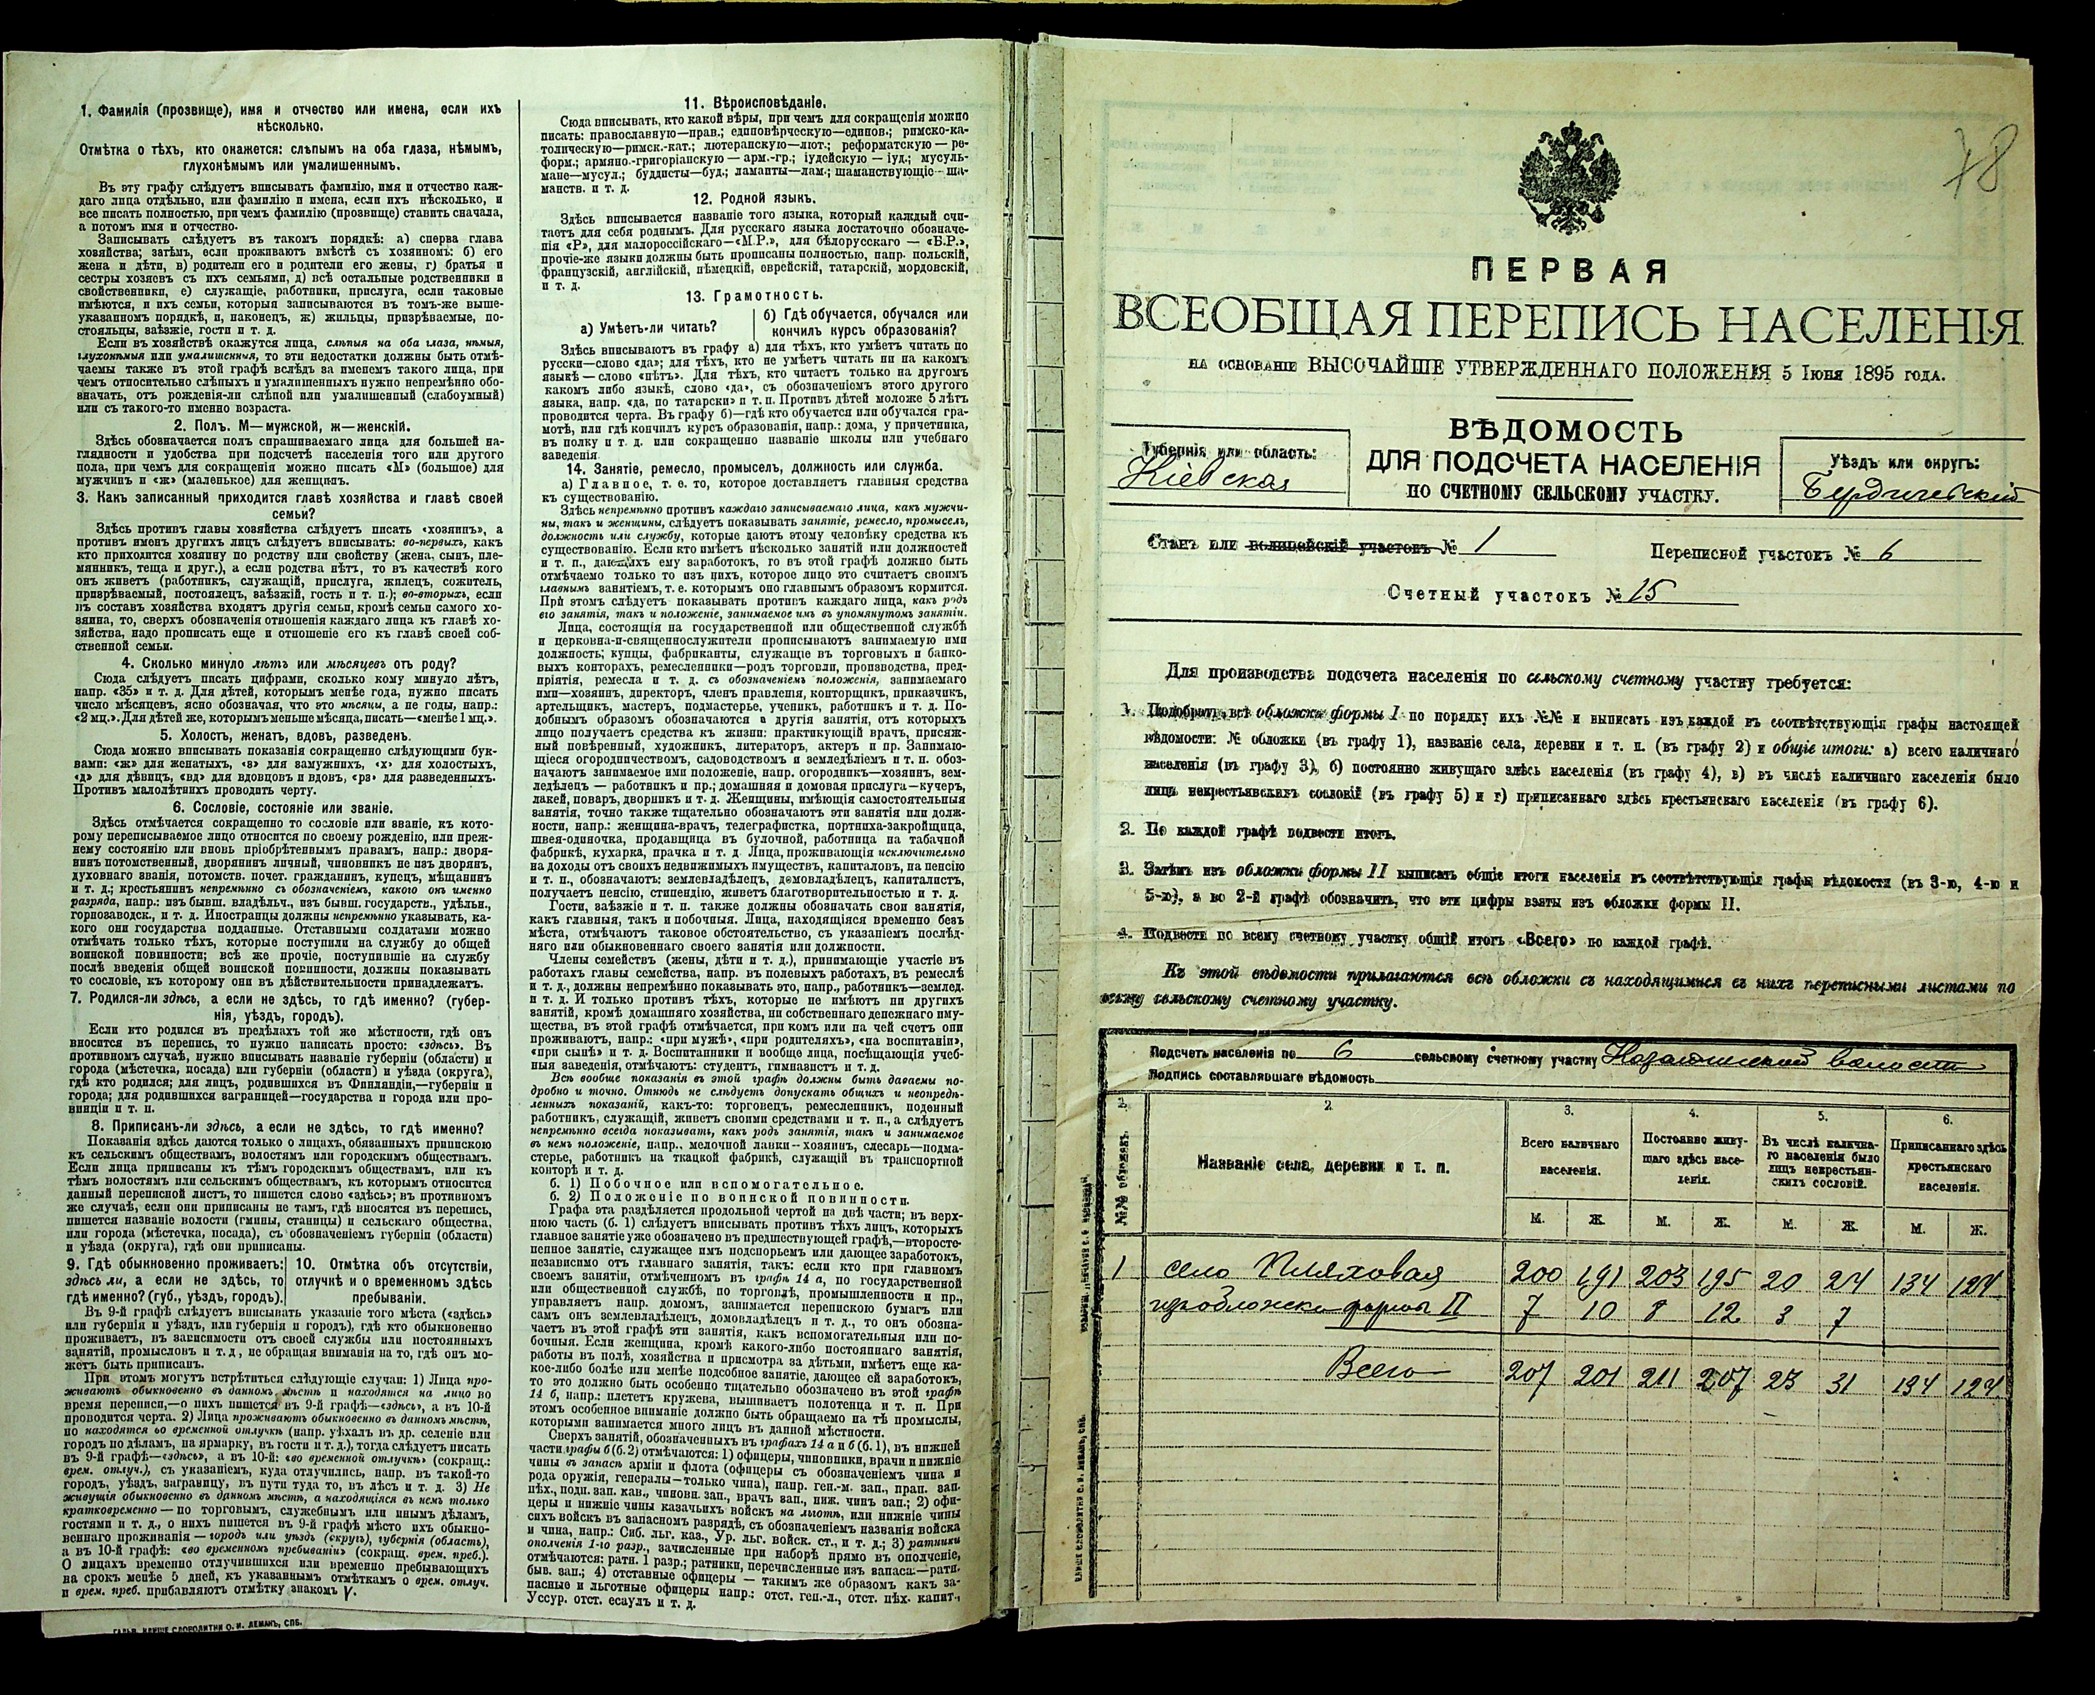 1. Фамилія (прозвище), имя и отчество или имена, если ихъ
нѣсколько.
Отмѣтка о тѣхъ, кто окажется: слѣпымъ на оба глаза, нѣмымъ,
глухонѣмымъ или умалишеннымъ.
Въ эту графу слѣдуетъ вписывать фамилію, имя и отчество каж-
даго лица отдѣльно, или фамилію и имена, если ихъ нѣсколько, и
все писать полностью, при чемъ фамилію (прозвище) ставить сначала,
а потомъ имя и отчество.
Записывать слѣдуетъ въ такомъ порядкѣ: а) сперва глава
хозяйства; затѣмъ, если проживаютъ вмѣстѣ съ хозяиномъ: б) его
жена и дѣти, в) родители его и родители его жены, г) братья и
сестры хозяевъ съ ихъ семьями, д) всѣ остальные родственники и
свойственники, е) служащіе, работники, прислуга, если таковые
имѣются, и ихъ семьи, которыя записываются въ томъ-же выше-
указанномъ порядкѣ, и, наконецъ, ж) жильцы, призрѣваемые, по-
стояльцы, заѣзжіе, гости и т. д.
Если въ хозяйствѣ окажутся лица, слѣпыя на оба глаза, нѣмыя,
глухонѣмыя или умалишенныя, то эти недостатки должны быть отмѣ-
чаемы также въ этой графѣ вслѣдъ за именемъ такого лица, при
чемъ относительно слѣпыхъ и умалишенныхъ нужно непремѣнно обо-
значать, отъ рожденія-ли слѣпой или умалишенный (слабоумный)
или съ такого-то именно возраста.
2. Полъ. М—мужской, ж—женскій.
Здѣсь обозначается полъ спрашиваемаго лица для большей на-
глядности и удобства при подсчетѣ населенія того или другого
пола, при чемъ для сокращенія можно писать «М» (большое) для
мужчинъ и «ж» (маленькое) для женщинъ.
3. Какъ записанный приходится главѣ хозяйства и главѣ своей
семьи?
Здѣсь противъ главы хозяйства слѣдуетъ писать «хозяинъ», а
противъ именъ другихъ лицъ слѣдуетъ вписывать: во-первыхъ, какъ
кто приходится хозяину по родству или свойству (жена, сынъ, пле-
мянникъ, теща и друг.), а если родства нѣтъ, то въ качествѣ кого
онъ живетъ (работникъ, служащій, прислуга, жилецъ, сожитель,
призрѣваемый, постоялецъ, заѣзжій, гость и т. п.); во-вторыхъ, если
въ составъ хозяйства входятъ другія семьи, кромѣ семьи самого хо-
зяина, то, сверхъ обозначенія отношенія каждаго лица къ главѣ хо-
зяйства, надо прописать еще и отношеніе его къ главѣ своей соб-
ственной семьи.
4. Сколько минуло лѣтъ или мѣсяцевъ отъ роду?
Сюда слѣдуетъ писать цифрами, сколько кому минуло лѣтъ,
напр. «35» и т. д. Для дѣтей, которымъ менѣе года, нужно писать
число мѣсяцевъ, ясно обозначая, что это мѣсяцы, а не годы, напр.:
«2 мц.». Для дѣтей же, которымъ меньше мѣсяца, писать—«менѣе 1 мц.».
5. Холостъ, женатъ, вдовъ, разведенъ.
Сюда можно вписывать показанія сокращенно слѣдующими бук-
вами: «ж» для женатыхъ, «з» для замужнихъ, «х» для холостыхъ,
«д» для дѣвицъ, «вд» для вдовцовъ и вдовъ, «рз» для разведенныхъ.
Противъ малолѣтнихъ проводить черту.
6. Сословіе, состояніе или званіе.
Здѣсь отмѣчается сокращенно то сословіе или званіе, къ кото-
рому переписываемое лицо относится по своему рожденію, или преж-
нему состоянію или вновь пріобрѣтеннымъ правамъ, напр.: дворя-
нинъ потомственный, дворянинъ личный, чиновникъ не изъ дворянъ,
духовнаго званія, потомств. почет. гражданинъ, купецъ, мѣщанинъ
и т. д.; крестьянинъ непремѣнно съ обозначеніемъ, какого онъ именно
разряда, напр.: изъ бывш. владѣльч., изъ бывш. государств., удѣльн.,
горнозаводск., и т. д. Иностранцы должны непремѣнно указывать, ка-
кого они государства подданные. Отставными солдатами можно
отмѣчать только тѣхъ, которые поступили на службу до общей
воинской повинности; всѣ же прочіе, поступившіе на службу
послѣ введенія общей воинской повинности, должны показывать
то сословіе, къ которому они въ дѣйствительности принадлежатъ.
7. Родился-ли здѣсь, а если не здѣсь, то гдѣ именно? (губер-
нія, уѣздъ, городъ).
Если кто родился въ предѣлахъ той же мѣстности, гдѣ онъ
вносится въ перепись, то нужно написать просто: «здѣсь». Въ
противномъ случаѣ, нужно вписывать названіе губерніи (области) и
города (мѣстечка, посада) или губерніи (области) и уѣзда (округа),
гдѣ кто родился; для лицъ, родившихся въ Финляндіи,—губерніи и
города; для родившихся заграницей—государства и города или про-
винціи и т. п.
8. Приписанъ-ли здѣсь, а если не здѣсь, то гдѣ именно?
Показанія здѣсь даются только о лицахъ, обязанныхъ припискою
къ сельскимъ обществамъ, волостямъ или городскимъ обществамъ.
Если лица приписаны къ тѣмъ городскимъ обществамъ, или къ
тѣмъ волостямъ или сельскимъ обществамъ, къ которымъ относится
данный переписной листъ, то пишется слово «здѣсь»; въ противномъ
же случаѣ, если они приписаны не тамъ, гдѣ вносятся въ перепись,
пишется названіе волости (гмины, станицы) и сельскаго общества,
или города (мѣстечка, посада), съ обозначеніемъ губерніи (области)
и уѣзда (округа), гдѣ они приписаны.
9. Гдѣ обыкновенно проживаетъ:
здѣсь ли, а если не здѣсь, то
гдѣ именно? (губ., уѣздъ, городъ).
10. Отмѣтка объ отсутствіи,
отлучкѣ и о временномъ здѣсь
пребываніи.
Въ 9-й графѣ слѣдуетъ вписывать указаніе того мѣста («здѣсь»
или губернія и уѣздъ, или губернія и городъ), гдѣ кто обыкновенно
проживаетъ, въ зависимости отъ своей службы или постоянныхъ
занятій, промысловъ и т. д., не обращая вниманія на то, гдѣ онъ мо-
жетъ быть приписанъ.
При этомъ могутъ встрѣтиться слѣдующіе случаи: 1) Лица про-
живаютъ обыкновенно въ данномъ мѣстѣ и находятся на лицо во
время переписи,—о нихъ пишется въ 9-й графѣ—«здѣсь», а въ 10-й
проводится черта. 2) Лица проживаютъ обыкновенно въ данномъ мѣстѣ,
но находятся во временной отлучкѣ (напр. уѣхалъ въ др. селеніе или
городъ по дѣламъ, на ярмарку, въ гости и т. д.), тогда слѣдуетъ писать
въ 9-й графѣ—«здѣсь», а въ 10-й: «во временной отлучкѣ» (сокращ.:
врем. отлуч.), съ указаніемъ, куда отлучились, напр. въ такой-то
городъ, уѣздъ, заграницу, въ пути туда то, въ лѣсъ и т. д. 3) Не
живущія обыкновенно въ данномъ мѣстѣ, а находящіяся въ немъ только
кратковременно — по торговымъ, служебнымъ или инымъ дѣламъ,
гостями и т. д., о нихъ пишется въ 9-й графѣ мѣсто ихъ обыкно-
веннаго проживанія — городъ или уѣздъ (округъ), губернія (область),
а въ 10-й графѣ: «во временномъ пребываніи» (сокращ. врем. преб.).
О лицахъ временно отлучившихся или временно пребывающихъ
на срокъ менѣе 5 дней, къ указаннымъ отмѣткамъ о врем. отлуч.
и врем. преб. прибавляютъ отмѣтку знакомъ V.
11. Вѣроисповѣданіе.
Сюда вписывать, кто какой вѣры, при чемъ для сокращенія можно
писать: православную—прав.; единовѣрческую—единов.; римско-ка-
толическую—римск.-кат.; лютеранскую—лют.; реформатскую — ре-
форм.; армяно.-григоріанскую — арм.-гр.; іудейскую — іуд.; мусуль-
мане—мусул.; буддисты—буд.; ламаиты—лам.; шаманствующіе—ша-
манств. и т. д.
12. Родной языкъ.
Здѣсь вписывается названіе того языка, который каждый счи-
таетъ для себя роднымъ. Для русскаго языка достаточно обозначе-
нія «Р», для малороссійскаго—«М.Р.», для бѣлорусскаго — «Б.Р.»,
прочіе-же языки должны быть прописаны полностью, напр. польскій,
французскій, англійскій, нѣмецкій, еврейскій, татарскій, мордовскій,
и т. д.
13. Грамотность.
а) Умѣетъ-ли читать?
б) Гдѣ обучается, обучался или
кончилъ курсъ образованія?
Здѣсь вписываютъ въ графу а) для тѣхъ, кто умѣетъ читать по
русски—слово «да»; для тѣхъ, кто не умѣетъ читать ни на какомъ
языкѣ — слово «нѣтъ». Для тѣхъ, кто читаетъ только на другомъ
какомъ либо языкѣ, слово «да», съ обозначеніемъ этого другого
языка, напр. «да, по татарски» и т. п. Противъ дѣтей моложе 5 лѣтъ
проводится черта. Въ графу б)—гдѣ кто обучается или обучался гра-
мотѣ, или гдѣ кончилъ курсъ образованія, напр.: дома, у причетника,
въ полку и т. д. или сокращенно названіе школы или учебнаго
заведенія.
14. Занятіе, ремесло, промыселъ, должность или служба.
а) Главное, т. е. то, которое доставляетъ главныя средства
къ существованію.
Здѣсь непремѣнно противъ каждаго записываемаго лица, какъ мужчи-
ны, такъ и женщины, слѣдуетъ показывать занятіе, ремесло, промыселъ,
должность или службу, которые даютъ этому человѣку средства къ
существованію. Если кто имѣетъ нѣсколько занятій или должностей
и т. п., дающихъ ему заработокъ, то въ этой графѣ должно быть
отмѣчаемо только то изъ нихъ, которое лицо это считаетъ своимъ
главнымъ занятіемъ, т. е. которымъ оно главнымъ образомъ кормится.
При этомъ слѣдуетъ показывать противъ каждаго лица, какъ родъ
его занятія, такъ и положеніе, занимаемое имъ въ упомянутомъ занятіи.
Лица, состоящія на государственной или общественной службѣ
и церковно-и-священнослужители прописываютъ занимаемую ими
должность; купцы, фабриканты, служащіе въ торговыхъ и банко-
выхъ конторахъ, ремесленники—родъ торговли, производства, пред-
пріятія, ремесла и т. д. съ обозначеніемъ положенія, занимаемаго
ими—хозяинъ, директоръ, членъ правленія, конторщикъ, приказчикъ,
артельщикъ, мастеръ, подмастерье, ученикъ, работникъ и т. д. По-
добнымъ образомъ обозначаются и другія занятія, отъ которыхъ
лицо получаетъ средства къ жизни: практикующій врачъ, присяж-
ный повѣренный, художникъ, литераторъ, актеръ и пр. Занимаю-
щіеся огородничествомъ, садоводствомъ и земледѣліемъ и т. п. обоз-
начаютъ занимаемое ими положеніе, напр. огородникъ—хозяинъ, зем-
ледѣлецъ — работникъ и пр.; домашняя и домовая прислуга—кучеръ,
лакей, поваръ, дворникъ и т. д. Женщины, имѣющія самостоятельныя
занятія, точно также тщательно обозначаютъ эти занятія или долж-
ности, напр.: женщина-врачъ, телеграфистка, портниха-закройщица,
швея-одиночка, продавщица въ булочной, работница на табачной
фабрикѣ, кухарка, прачка и т. д. Лица, проживающія исключительно
на доходы отъ своихъ недвижимыхъ имуществъ, капиталовъ, на пенсію
и т. п., обозначаютъ: землевладѣлецъ, домовладѣлецъ, капиталистъ,
получаетъ пенсію, стипендію, живетъ благотворительностью и т. д.
Гости, заѣзжіе и т. п. также должны обозначать свои занятія,
какъ главныя, такъ и побочныя. Лица, находящіяся временно безъ
мѣста, отмѣчаютъ таковое обстоятельство, съ указаніемъ послѣд-
няго или обыкновеннаго своего занятія или должности.
Члены семействъ (жены, дѣти и т. д.), принимающіе участіе въ
работахъ главы семейства, напр. въ полевыхъ работахъ, въ ремеслѣ
и т. д., должны непремѣнно показывать это, напр., работникъ—землед.
и т. д. И только противъ тѣхъ, которые не имѣютъ ни другихъ
занятій, кромѣ домашняго хозяйства, ни собственнаго денежнаго иму-
щества, въ этой графѣ отмѣчается, при комъ или на чей счетъ они
проживаютъ, напр.: «при мужѣ», «при родителяхъ», «на воспитаніи»,
«при сынѣ» и т. д. Воспитанники и вообще лица, посѣщающія учеб-
ныя заведенія, отмѣчаютъ: студентъ, гимназистъ и т. д.
Всѣ вообще показанія въ этой графѣ должны быть даваемы по-
дробно и точно. Отнюдь не слѣдуетъ допускать общихъ и неопредѣ-
ленныхъ показаній, какъ-то: торговецъ, ремесленникъ, поденный
работникъ, служащій, живетъ своими средствами и т. п., а слѣдуетъ
непремѣнно всегда показывать, какъ родъ занятія, такъ и занимаемое
въ немъ положеніе, напр., мелочной лавки—хозяинъ, слесарь—подма-
стерье, работникъ на ткацкой фабрикѣ, служащій въ транспортной
конторѣ и т. д.
б. 1) Побочное или вспомогательное.
б. 2) Положеніе по воинской повинности.
Графа эта раздѣляется продольной чертой на двѣ части; въ верх-
нюю часть (б. 1) слѣдуетъ вписывать противъ тѣхъ лицъ, которыхъ
главное занятіе уже обозначено въ предшествующей графѣ,—второсте-
пенное занятіе, служащее имъ подспорьемъ или дающее заработокъ,
независимо отъ главнаго занятія, такъ: если кто при главномъ
своемъ занятіи, отмѣченномъ въ графѣ 14 а, по государственной
или общественной службѣ, по торговлѣ, промышленности и пр.,
управляетъ напр. домомъ, занимается перепискою бумагъ или
самъ онъ землевладѣлецъ, домовладѣлецъ и т. д., то онъ обозна-
чаетъ въ этой графѣ эти занятія, какъ вспомогательныя или по-
бочныя. Если женщина, кромѣ какого-либо постояннаго занятія,
работы въ полѣ, хозяйства и присмотра за дѣтьми, имѣетъ еще ка-
кое-либо болѣе или менѣе подсобное занятіе, дающее ей заработокъ,
то это должно быть особенно тщательно обозначено въ этой графѣ
14 б, напр.: плететъ кружева, вышиваетъ полотенца и т. п. При
этомъ особенное вниманіе должно быть обращаемо на тѣ промыслы,
которыми занимается много лицъ въ данной мѣстности.
Сверхъ занятій, обозначенныхъ въ графахъ 14 а и б (б. 1), въ нижней
части графы б (б. 2) отмѣчаются: 1) офицеры, чиновники, врачи и нижніе
чины въ запасѣ арміи и флота (офицеры съ обозначеніемъ чина и
рода оружія, генералы—только чина), напр. ген.-м. зап., прап. зап.
пѣх., подп. зап. кав., чиновн. зап., врачъ зап., ниж. чинъ зап.; 2) офи-
церы и нижніе чины казачьихъ войскъ на льготѣ, или нижніе чины
сихъ войскъ въ запасномъ разрядѣ, съ обозначеніемъ названія войска
и чина, напр.: Сиб. льг. каз., Ур. льг. войск. ст., и т. д.; 3) ратники
ополченія 1-го разр., зачисленные при наборѣ прямо въ ополченіе,
отмѣчаются: ратн. 1 разр.; ратники, перечисленные изъ запаса:—ратн.
быв. зап.; 4) отставные офицеры — такимъ же образомъ какъ за-
пасные и льготные офицеры напр.: отст. ген.-л., отст. пѣх. капит.,
Уссур. отст. есаулъ и т. д.
ГАЛЬВ. КЛИШЕ СЛОВОЛИТНИ О. И. ЛЕМАНЪ, СПБ.
78
ПЕРВАЯ
ВСЕОБЩАЯ ПЕРЕПИСЬ НАСЕЛЕНІЯ
НА ОСНОВАНІИ ВЫСОЧАЙШЕ УТВЕРЖДЕННАГО ПОЛОЖЕНІЯ 5 Іюня 1895 ГОДА.
ВѢДОМОСТЬ
ДЛЯ ПОДСЧЕТА НАСЕЛЕНІЯ
ПО СЧЕТНОМУ СЕЛЬСКОМУ УЧАСТКУ.
Губернія или область:
Кіевская
Уѣздъ или округъ:
Бердичевскій
Станъ или полицейскій участокъ № 1
Переписной участокъ № 6
Счетный участокъ № 15
Для производства подсчета населенія по сельскому счетному участку требуется:
1. Подобрать всѣ обложки формы I по порядку ихъ №№ и выписать изъ каждой въ соотвѣтствующія графы настоящей
вѣдомости: № обложки (въ графу 1), названіе села, деревни и т. п. (въ графу 2) и общіе итоги: а) всего наличнаго
населенія (въ графу 3), б) постоянно живущаго здѣсь населенія (въ графу 4), в) въ числѣ наличнаго населенія было
лицъ некрестьянскихъ сословій (въ графу 5) и г) приписаннаго здѣсь крестьянскаго населенія (въ графу 6).
2. По каждой графѣ подвести итогъ.
3. Затѣмъ изъ обложки формы II выписать общіе итоги населенія въ соотвѣтствующія графы вѣдомости (въ 3-ю, 4-ю и
5-ю), а во 2-й графѣ обозначить, что эти цифры взяты изъ обложки формы II.
4. Подвести по всему счетному участку общій итогъ «Всего» по каждой графѣ.
Къ этой вѣдомости прилагаются всѣ обложки съ находящимися въ нихъ переписными листами по
всему сельскому счетному участку.
Подсчетъ населенія по 6 сельскому счетному участку волости
Подпись составлявшаго вѣдомость
1. 2. 3. 4. 5. 6.
№№ обложекъ.
Названіе села, деревни и т. п.
Всего наличнаго населенія.
Постоянно живущаго здѣсь населенія.
Въ числѣ наличнаго населенія было лицъ некрестьянскихъ сословій.
Приписаннаго здѣсь крестьянскаго населенія.
М. Ж. М. Ж. М. Ж. М. Ж.
1 село Пляховая 200 191 203 195 20 24 134 124
изъ обложки формы II 7 10 8 12 3 7
Всего 207 201 211 207 23 31 134 124